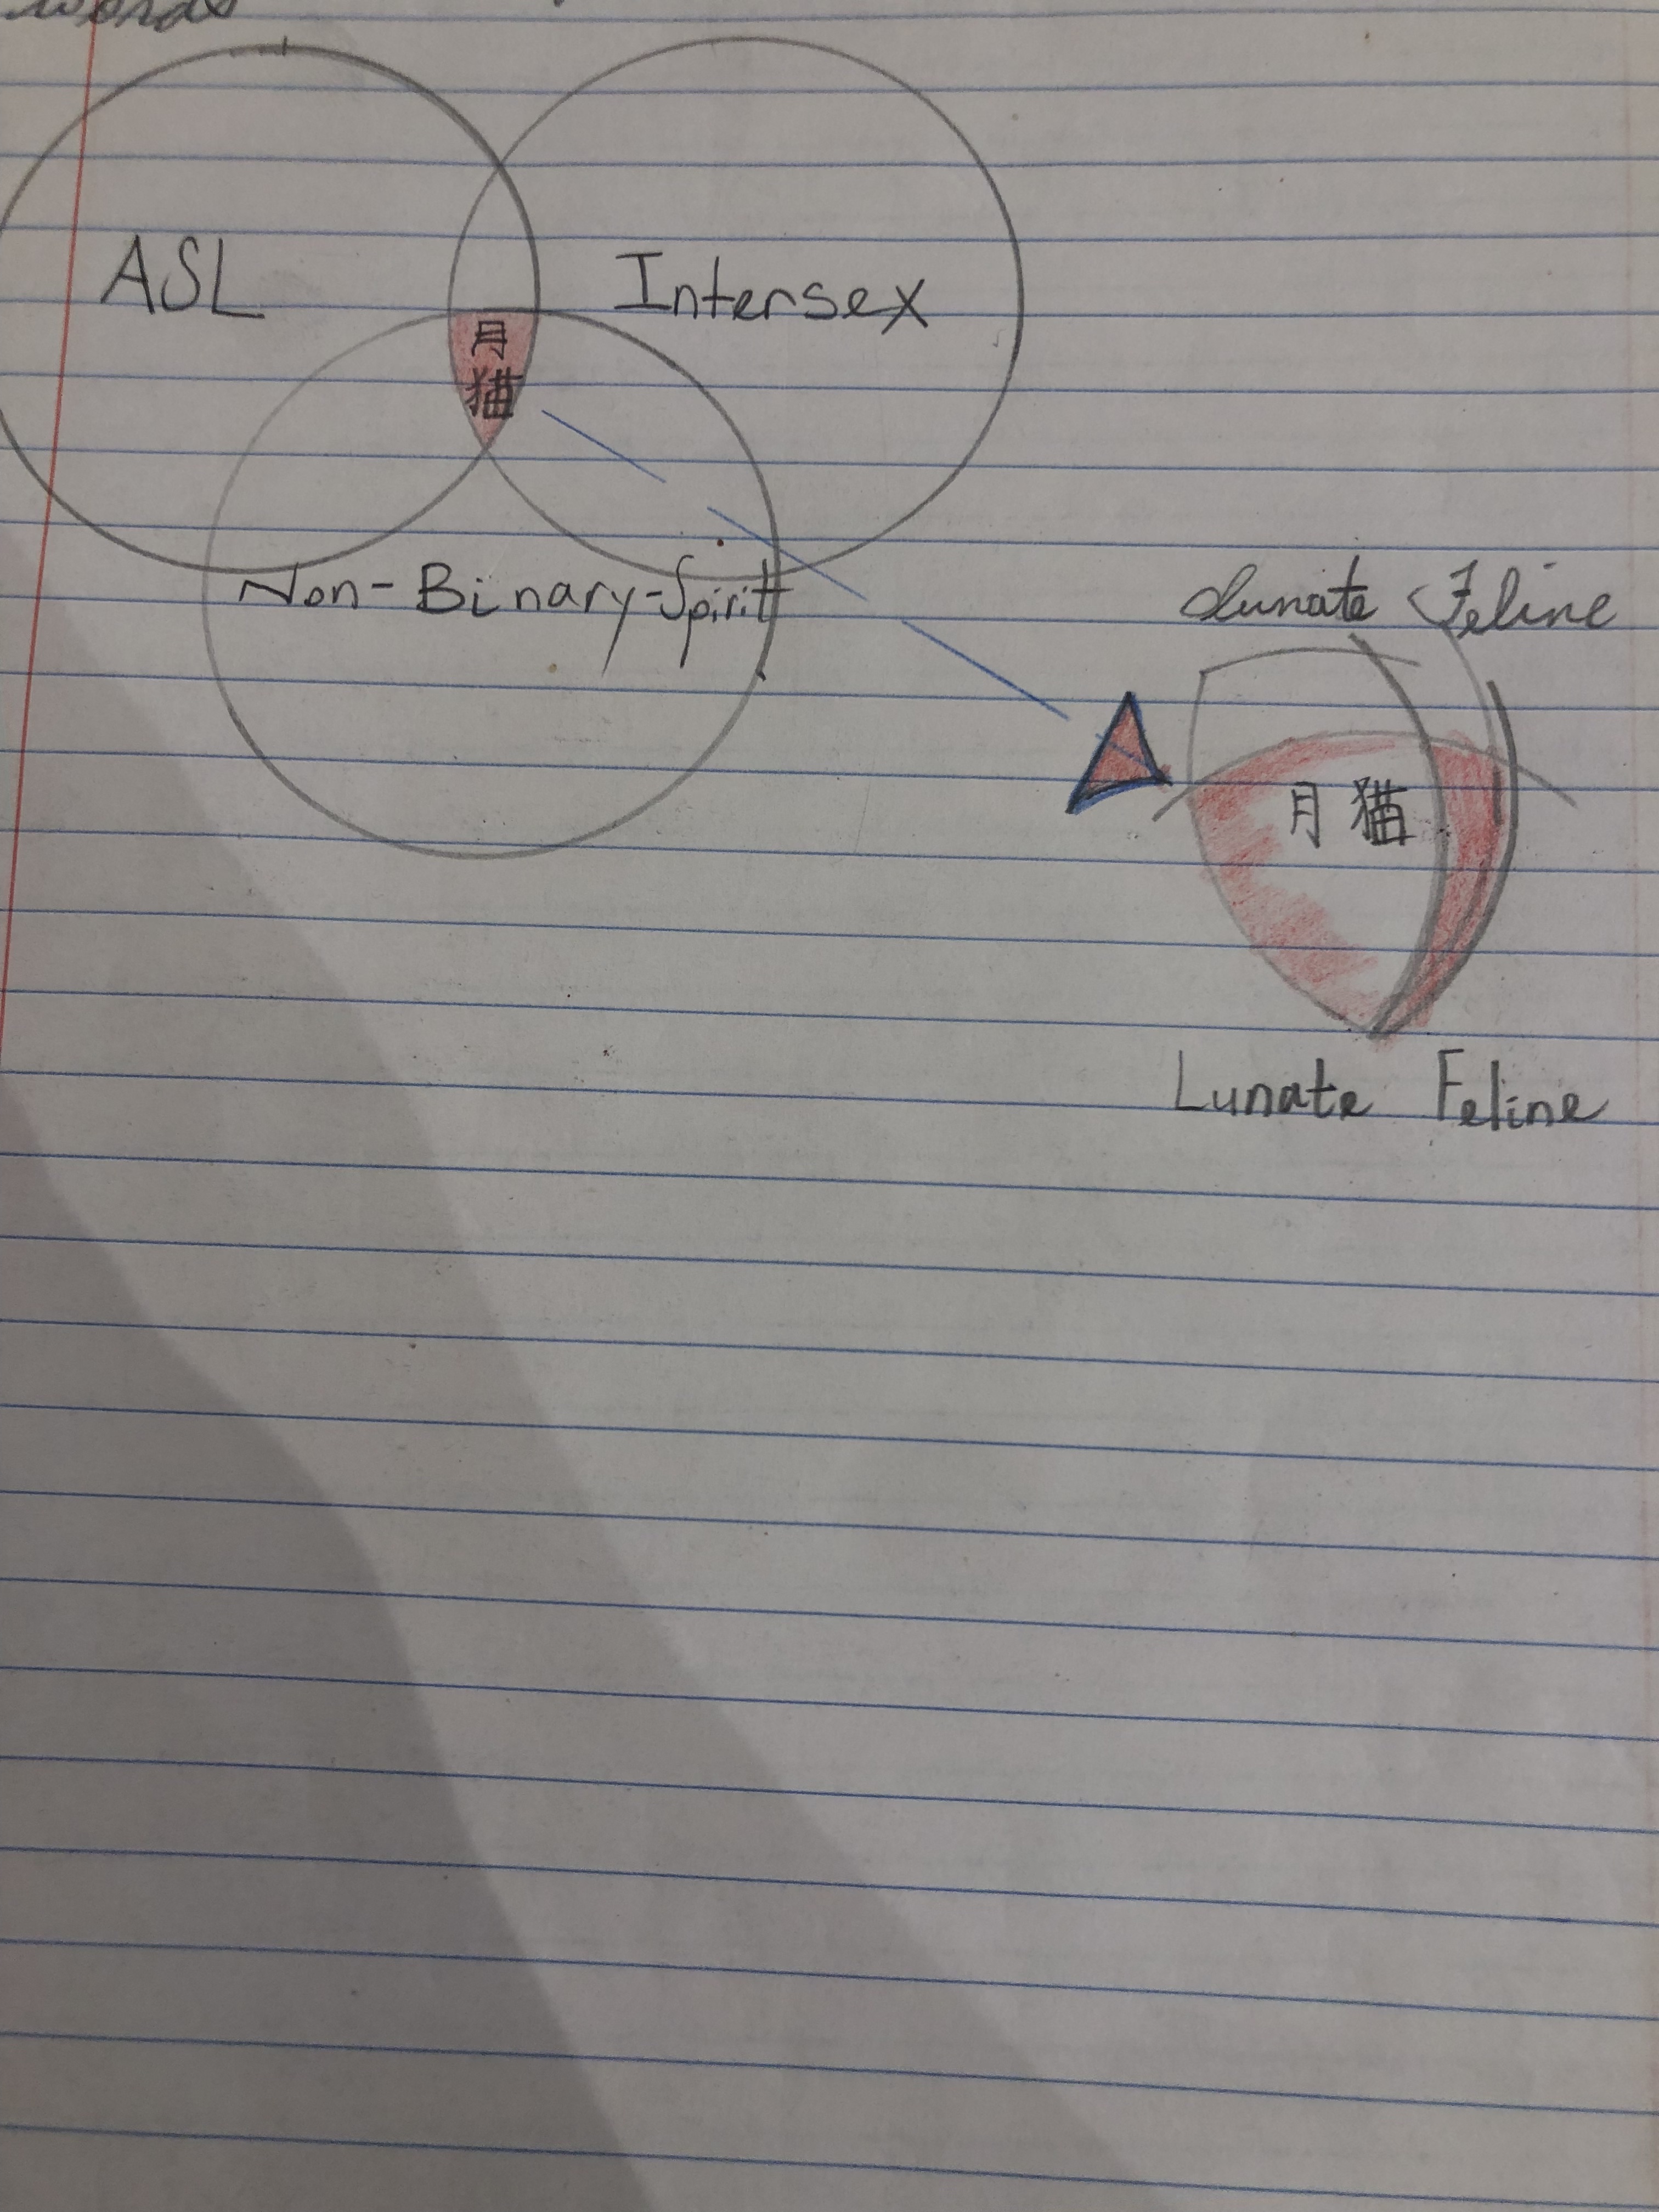 words
ASL
Intersex
月
猫
Non-Binary-Spirit
Lunate Feline
月猫
Lunate Feline